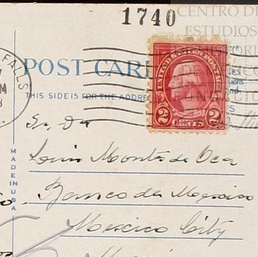 1740
CENTRO DE
ESTUDIOS
FALLS
POST CARD
THIS SIDE IS FOR THE ADDRESS
UNITED STATES POSTAGE
2 CENTS 2
MADE IN U.S.A.
Luis Montes de Oca
Banco de Mexico
Mexico City